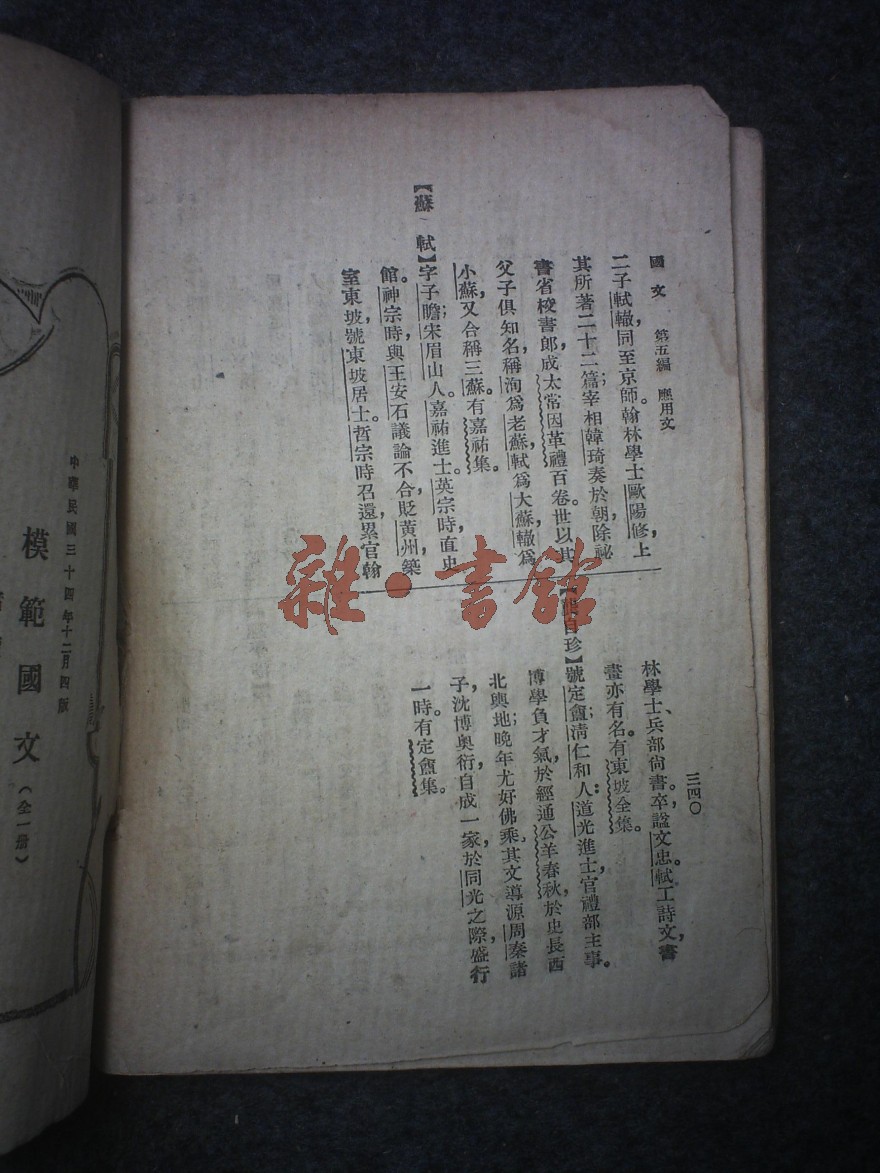 國文 第五編 應用文
三四〇
二子軾轍同至京師。翰林學士歐陽修，上
其所著二十二篇；宰相韓琦奏於朝，除祕
書省校書郎，成太常因革禮百卷。世以其
父子俱知名，稱洵爲老蘇，軾爲大蘇，轍爲
小蘇，又合稱三蘇。有嘉祐集。
【蘇 軾】字子瞻；宋眉山人。嘉祐進士。英宗時直史
館。神宗時與王安石議論不合，貶黃州，築
室東坡，號東坡居士。哲宗時召還，累官翰
林學士、兵部尙書。卒，諡文忠。軾工詩文，書
畫亦有名。有東坡全集。
【龔自珍】號定盦；清仁和人；道光進士，官禮部主事。
博學負才氣，於經通公羊春秋，於史長西
北輿地；晚年尤好佛乘。其文導源周秦諸
子，沈博奧衍，自成一家，於同光之際，盛行
一時。有定盦集。
雜·書館
中華民國三十四年十二月四版
模範國文（全一册）